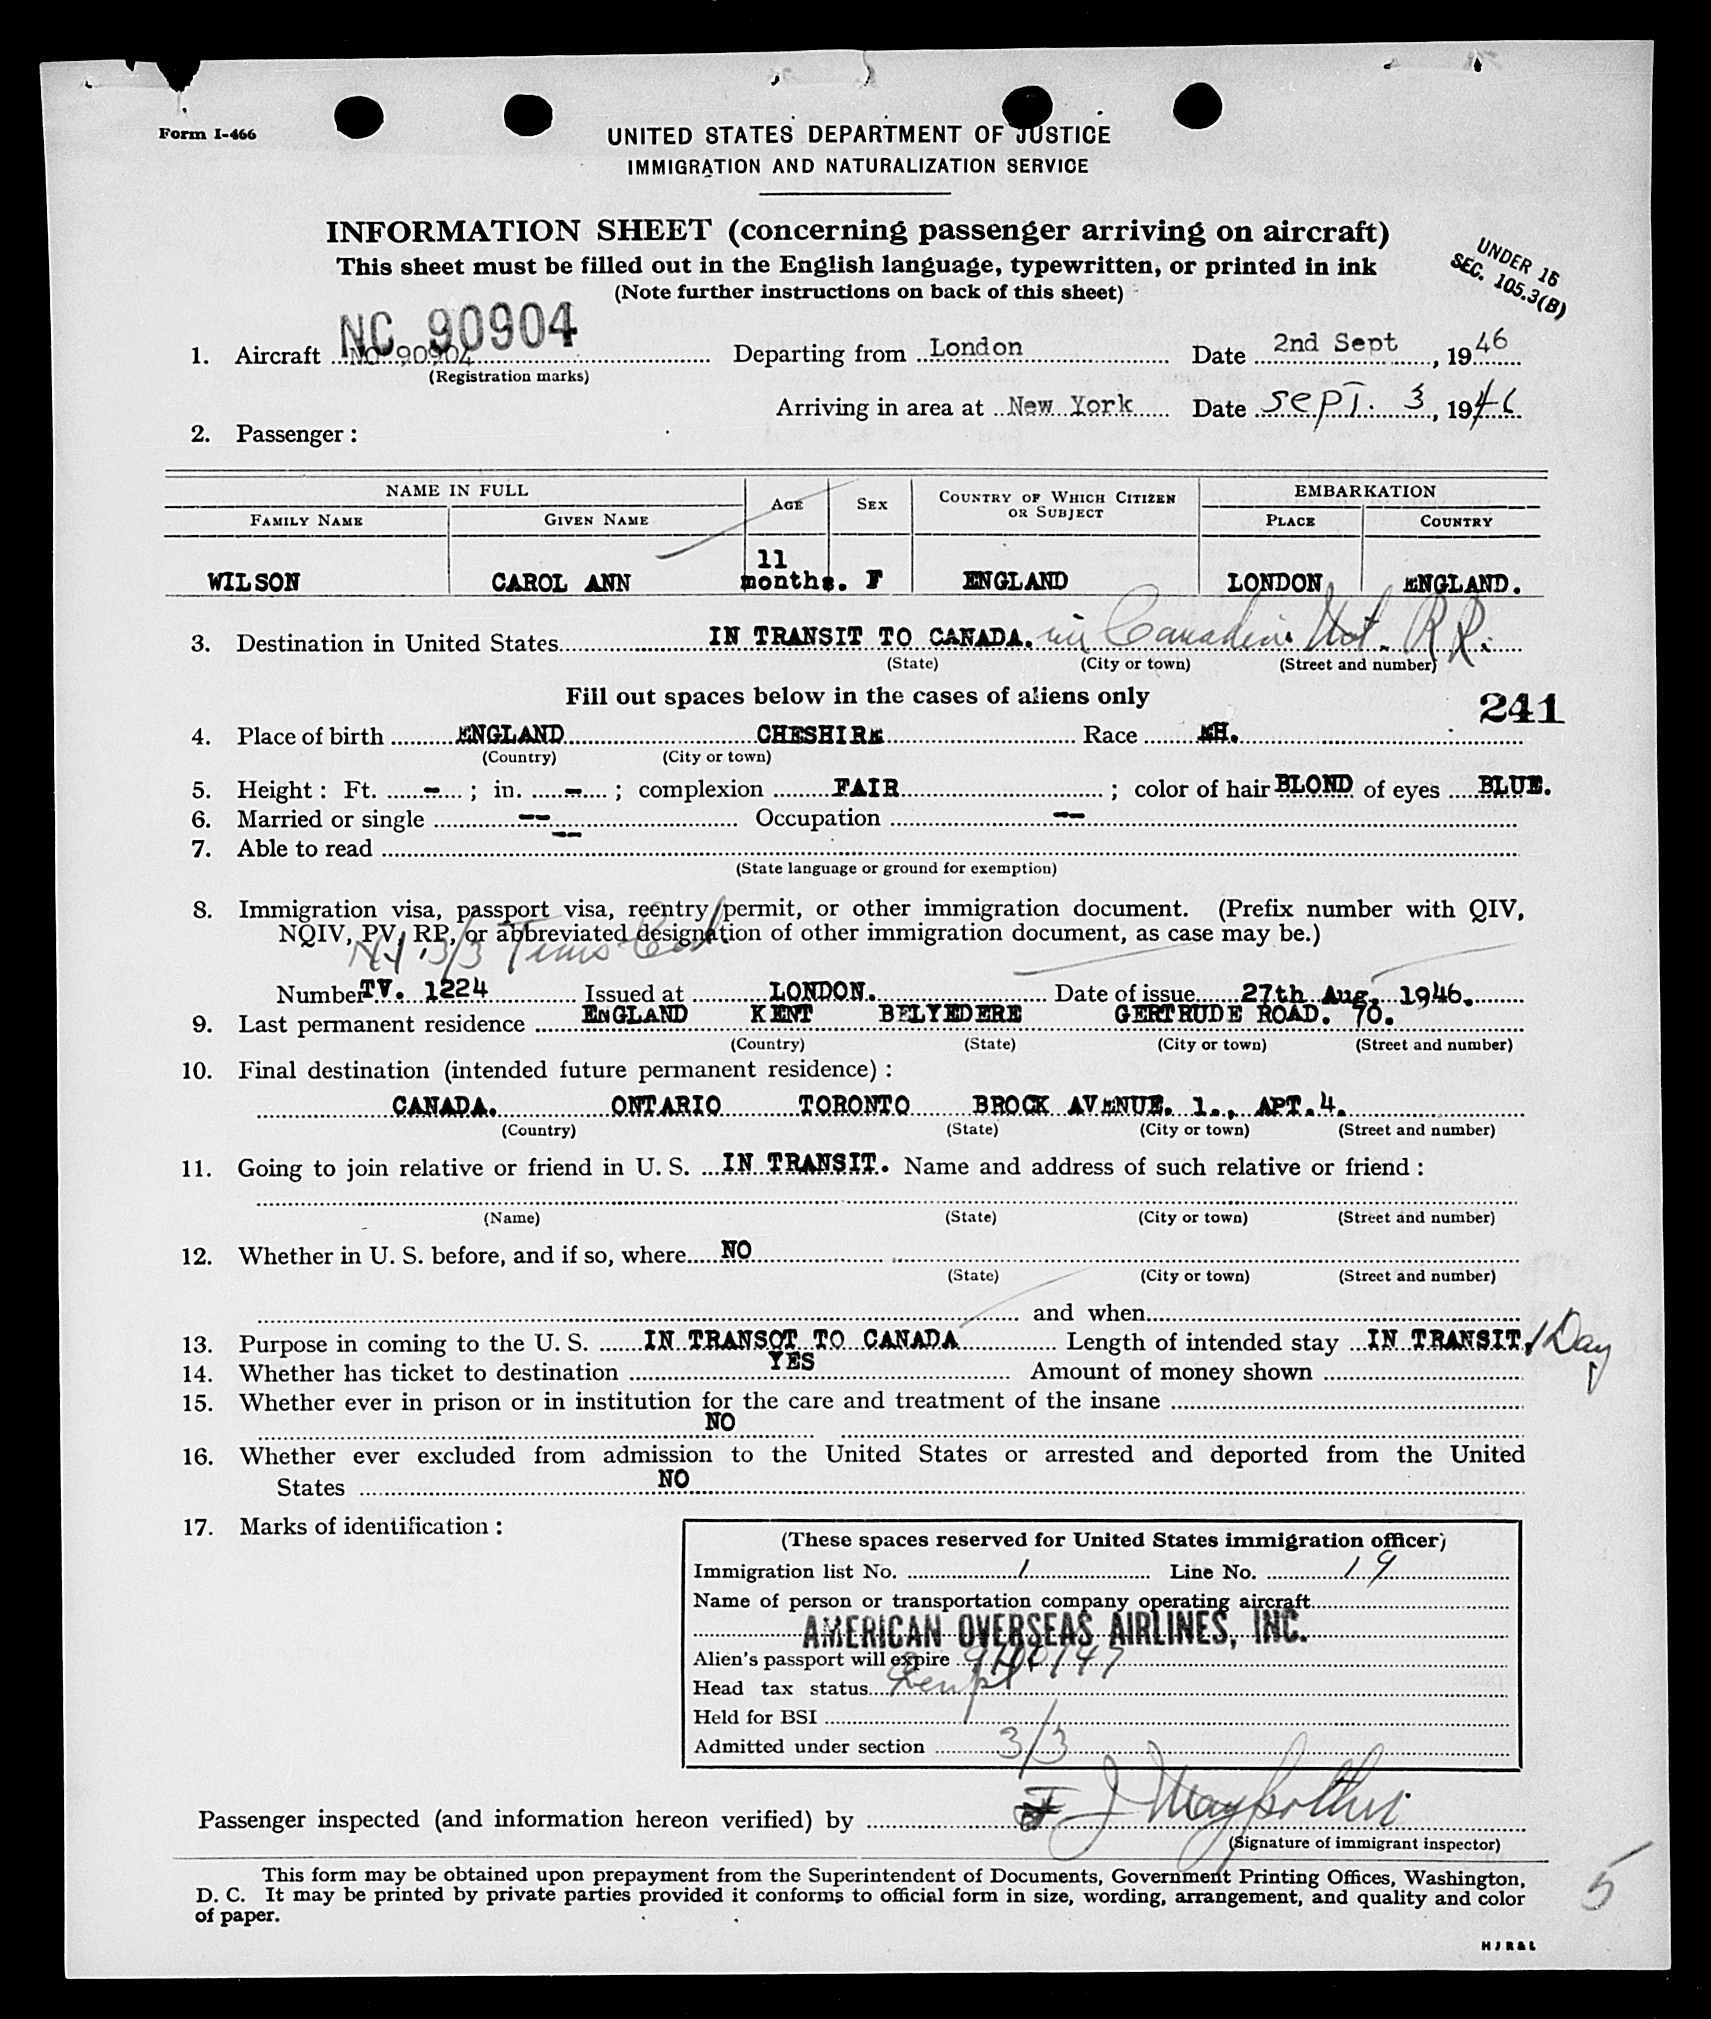 Form I-466
UNITED STATES DEPARTMENT OF JUSTICE
IMMIGRATION AND NATURALIZATION SERVICE
INFORMATION SHEET (concerning passenger arriving on aircraft)
This sheet must be filled out in the English language, typewritten, or printed in ink
(Note further instructions on back of this sheet)
UNDER 16
SEC. 105.3(B)
NC 90904
1. Aircraft NC 90904 Departing from London Date 2nd Sept, 1946
(Registration marks)
Arriving in area at New York Date Sept. 3, 1946
2. Passenger:
NAME IN FULL AGE SEX COUNTRY OF WHICH CITIZEN OR SUBJECT EMBARKATION
FAMILY NAME GIVEN NAME PLACE COUNTRY
11
WILSON CAROL ANN months. F ENGLAND LONDON ENGLAND.
3. Destination in United States IN TRANSIT TO CANADA. Canadian Nat. RR.
(State) (City or town) (Street and number)
Fill out spaces below in the cases of aliens only
241
4. Place of birth ENGLAND CHESHIRE Race EH.
(Country) (City or town)
5. Height: Ft. -; in. -; complexion FAIR; color of hair BLOND of eyes BLUE.
6. Married or single -- Occupation --
7. Able to read --
(State language or ground for exemption)
8. Immigration visa, passport visa, reentry permit, or other immigration document. (Prefix number with QIV,
NQIV, PV, RP, or abbreviated designation of other immigration document, as case may be.)
NY 3/3
Number TV. 1224 Issued at LONDON. Date of issue 27th Aug. 1946.
9. Last permanent residence ENGLAND KENT BELVEDERE GERTRUDE ROAD. 70.
(Country) (State) (City or town) (Street and number)
10. Final destination (intended future permanent residence):
CANADA. ONTARIO TORONTO BROCK AVENUE. 1., APT.4.
(Country) (State) (City or town) (Street and number)
11. Going to join relative or friend in U. S. IN TRANSIT. Name and address of such relative or friend:
(Name) (State) (City or town) (Street and number)
12. Whether in U. S. before, and if so, where NO
(State) (City or town) (Street and number)
and when
13. Purpose in coming to the U. S. IN TRANSOT TO CANADA Length of intended stay IN TRANSIT. 1 Day
14. Whether has ticket to destination YES Amount of money shown
15. Whether ever in prison or in institution for the care and treatment of the insane
NO
16. Whether ever excluded from admission to the United States or arrested and deported from the United
States NO
17. Marks of identification:
(These spaces reserved for United States immigration officer)
Immigration list No. 1 Line No. 19
Name of person or transportation company operating aircraft
AMERICAN OVERSEAS AIRLINES, INC.
Alien's passport will expire
Head tax status
Held for BSI
Admitted under section 3/3
Passenger inspected (and information hereon verified) by
(Signature of immigrant inspector)
This form may be obtained upon prepayment from the Superintendent of Documents, Government Printing Offices, Washington,
D. C. It may be printed by private parties provided it conforms to official form in size, wording, arrangement, and quality and color
of paper.
5
H J R & L